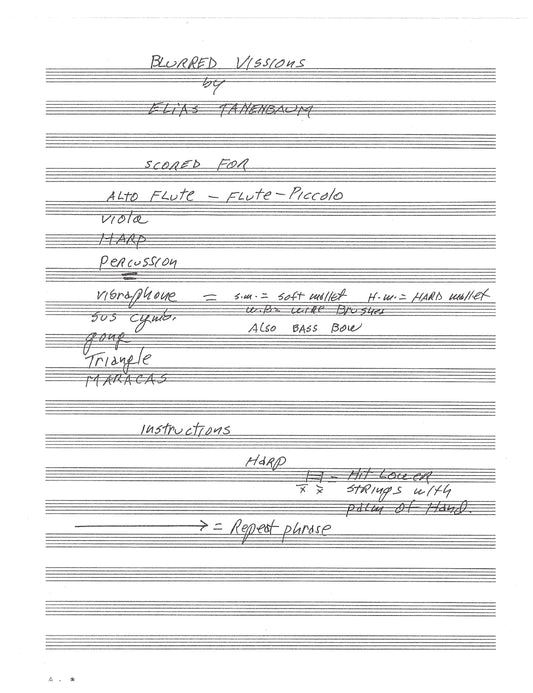 BLURRED VISSIONS
by
ELIAS TANENBAUM
SCORED FOR
ALTO FLUTE – FLUTE – PICCOLO
Viola
HARP
PERCUSSION
Vibraphone = S.M. = Soft mallet H.M. = HARD mallet
W.B = WIRE Brushes
SUS Cymb. ALSO BASS BOW
gong
Triangle
MARACAS
Instructions
HARP
= Hit LOWER
x x STRINGS with
palm of Hand.
= Repeat phrase